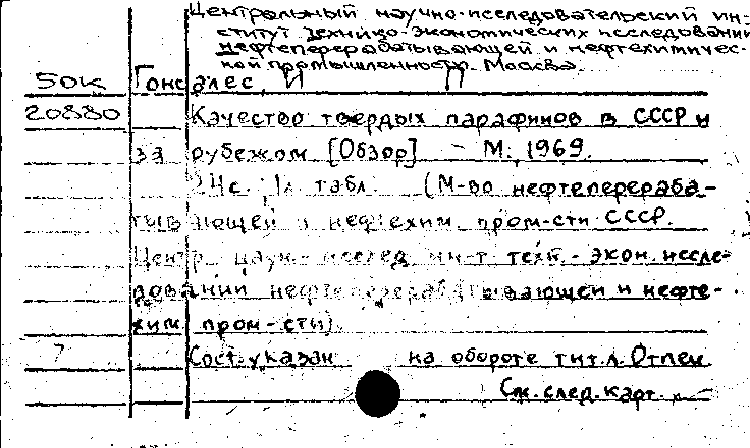 Центральный научно-исследовательский ин-
ститут технико-экономических исследований
нефтеперерабатывающей и нефтехимичес-
кой промышленности. Москва
50к Гонсалес, И П
20880 Качество твердых парафинов в СССР и
за рубежом [Обзор] - М., 1969.
24с. 1л. табл. (М-во нефтеперераба-
тывающей и нефтехим. пром-сти СССР.
Центр. научн.-исслед. ин-т техн.-экон. иссле-
дований нефтеперерабатывающей и нефте-
хим. пром-сти).
7 Сост. указан на обороте тит. л. Отпеч.
См. след. карт.